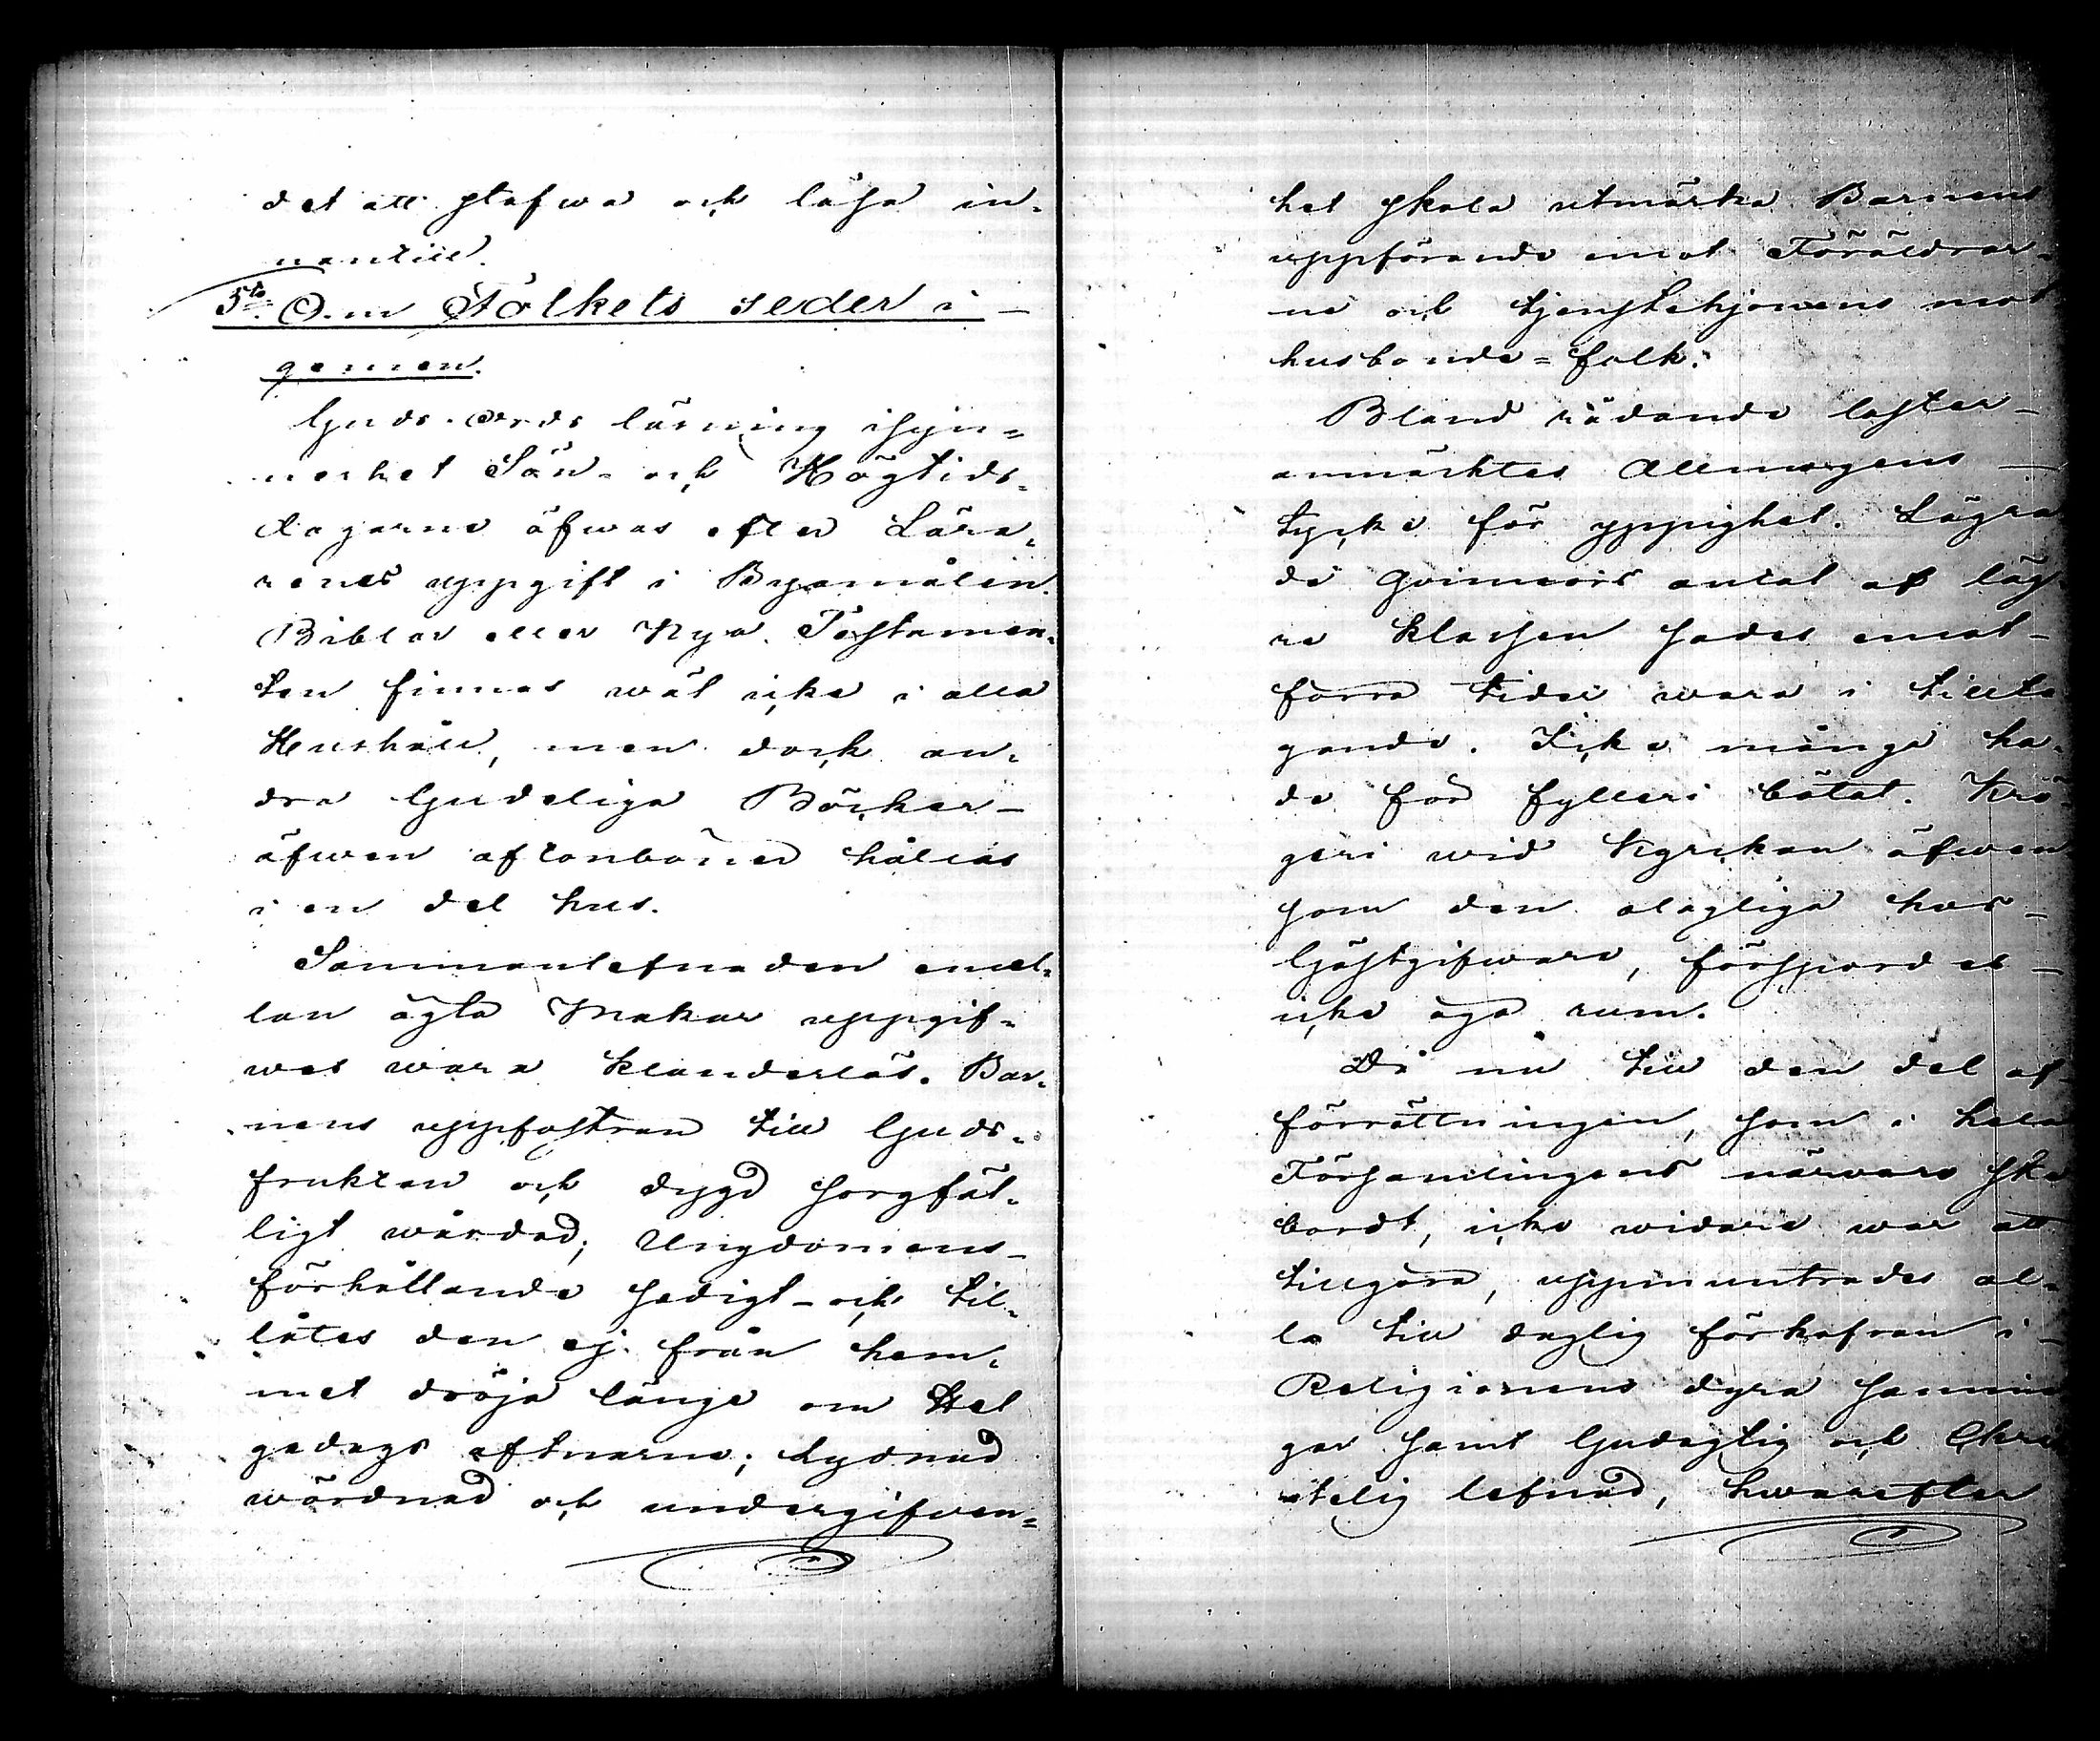 det att stafwa och läsa in-
nantill.
5to Om Folkets seder i -
gemen.
Guds-ords läsning isyn=
nerhet Sön- och Högtids-
dagarne öfwas efter Lära-
renes uppgift i Byamålen.
Biblar eller Nya Testamen-
ten finnas wäl icke i alla
Hushåll, men dock an-
dra Gudeliga Böcker -
äfwen aftonböner hållas
i en del hus.
Sammanlefnaden emel-
lan ägta Makar uppgif-
wes wara klanderlös. Bar-
nens uppfostran till Guds-
fruktan och dygd sorgfäl-
ligt wårdad; Ungdomens -
förhållande sedigt - och til-
låtes den ej från hem-
met dröja länge om Hel
gedags aftnarne; Lydnad
wördnad och undergifwen=
het skola utmärka Barnens
uppförande emot Föräldrar-
ne och tjenstehjonens mot
husbonde=folk.
Bland rådande laster -
anmärktes Allmogens -
tycke för yppighet. Lägra
de Qvinnors antal af läg-
re klassen sades emot -
förra tider wara i tillta
gande. Icke många ha-
de för fylleri bötat. Krö-
geri wid Kyrkan äfwen
som den olagliga hos -
Gästgifware, förspordes -
icke äga rum.
Då nu till den del af
förrättningen, som i hela
Församlingens närvaro ske
bordt, icke widare war att
tillgöra, uppmuntrades al-
la till daglig förkofran i -
Religionens dyra sannin
gar samt Gudagtig och Chri
stelig lefnad, hwarefter